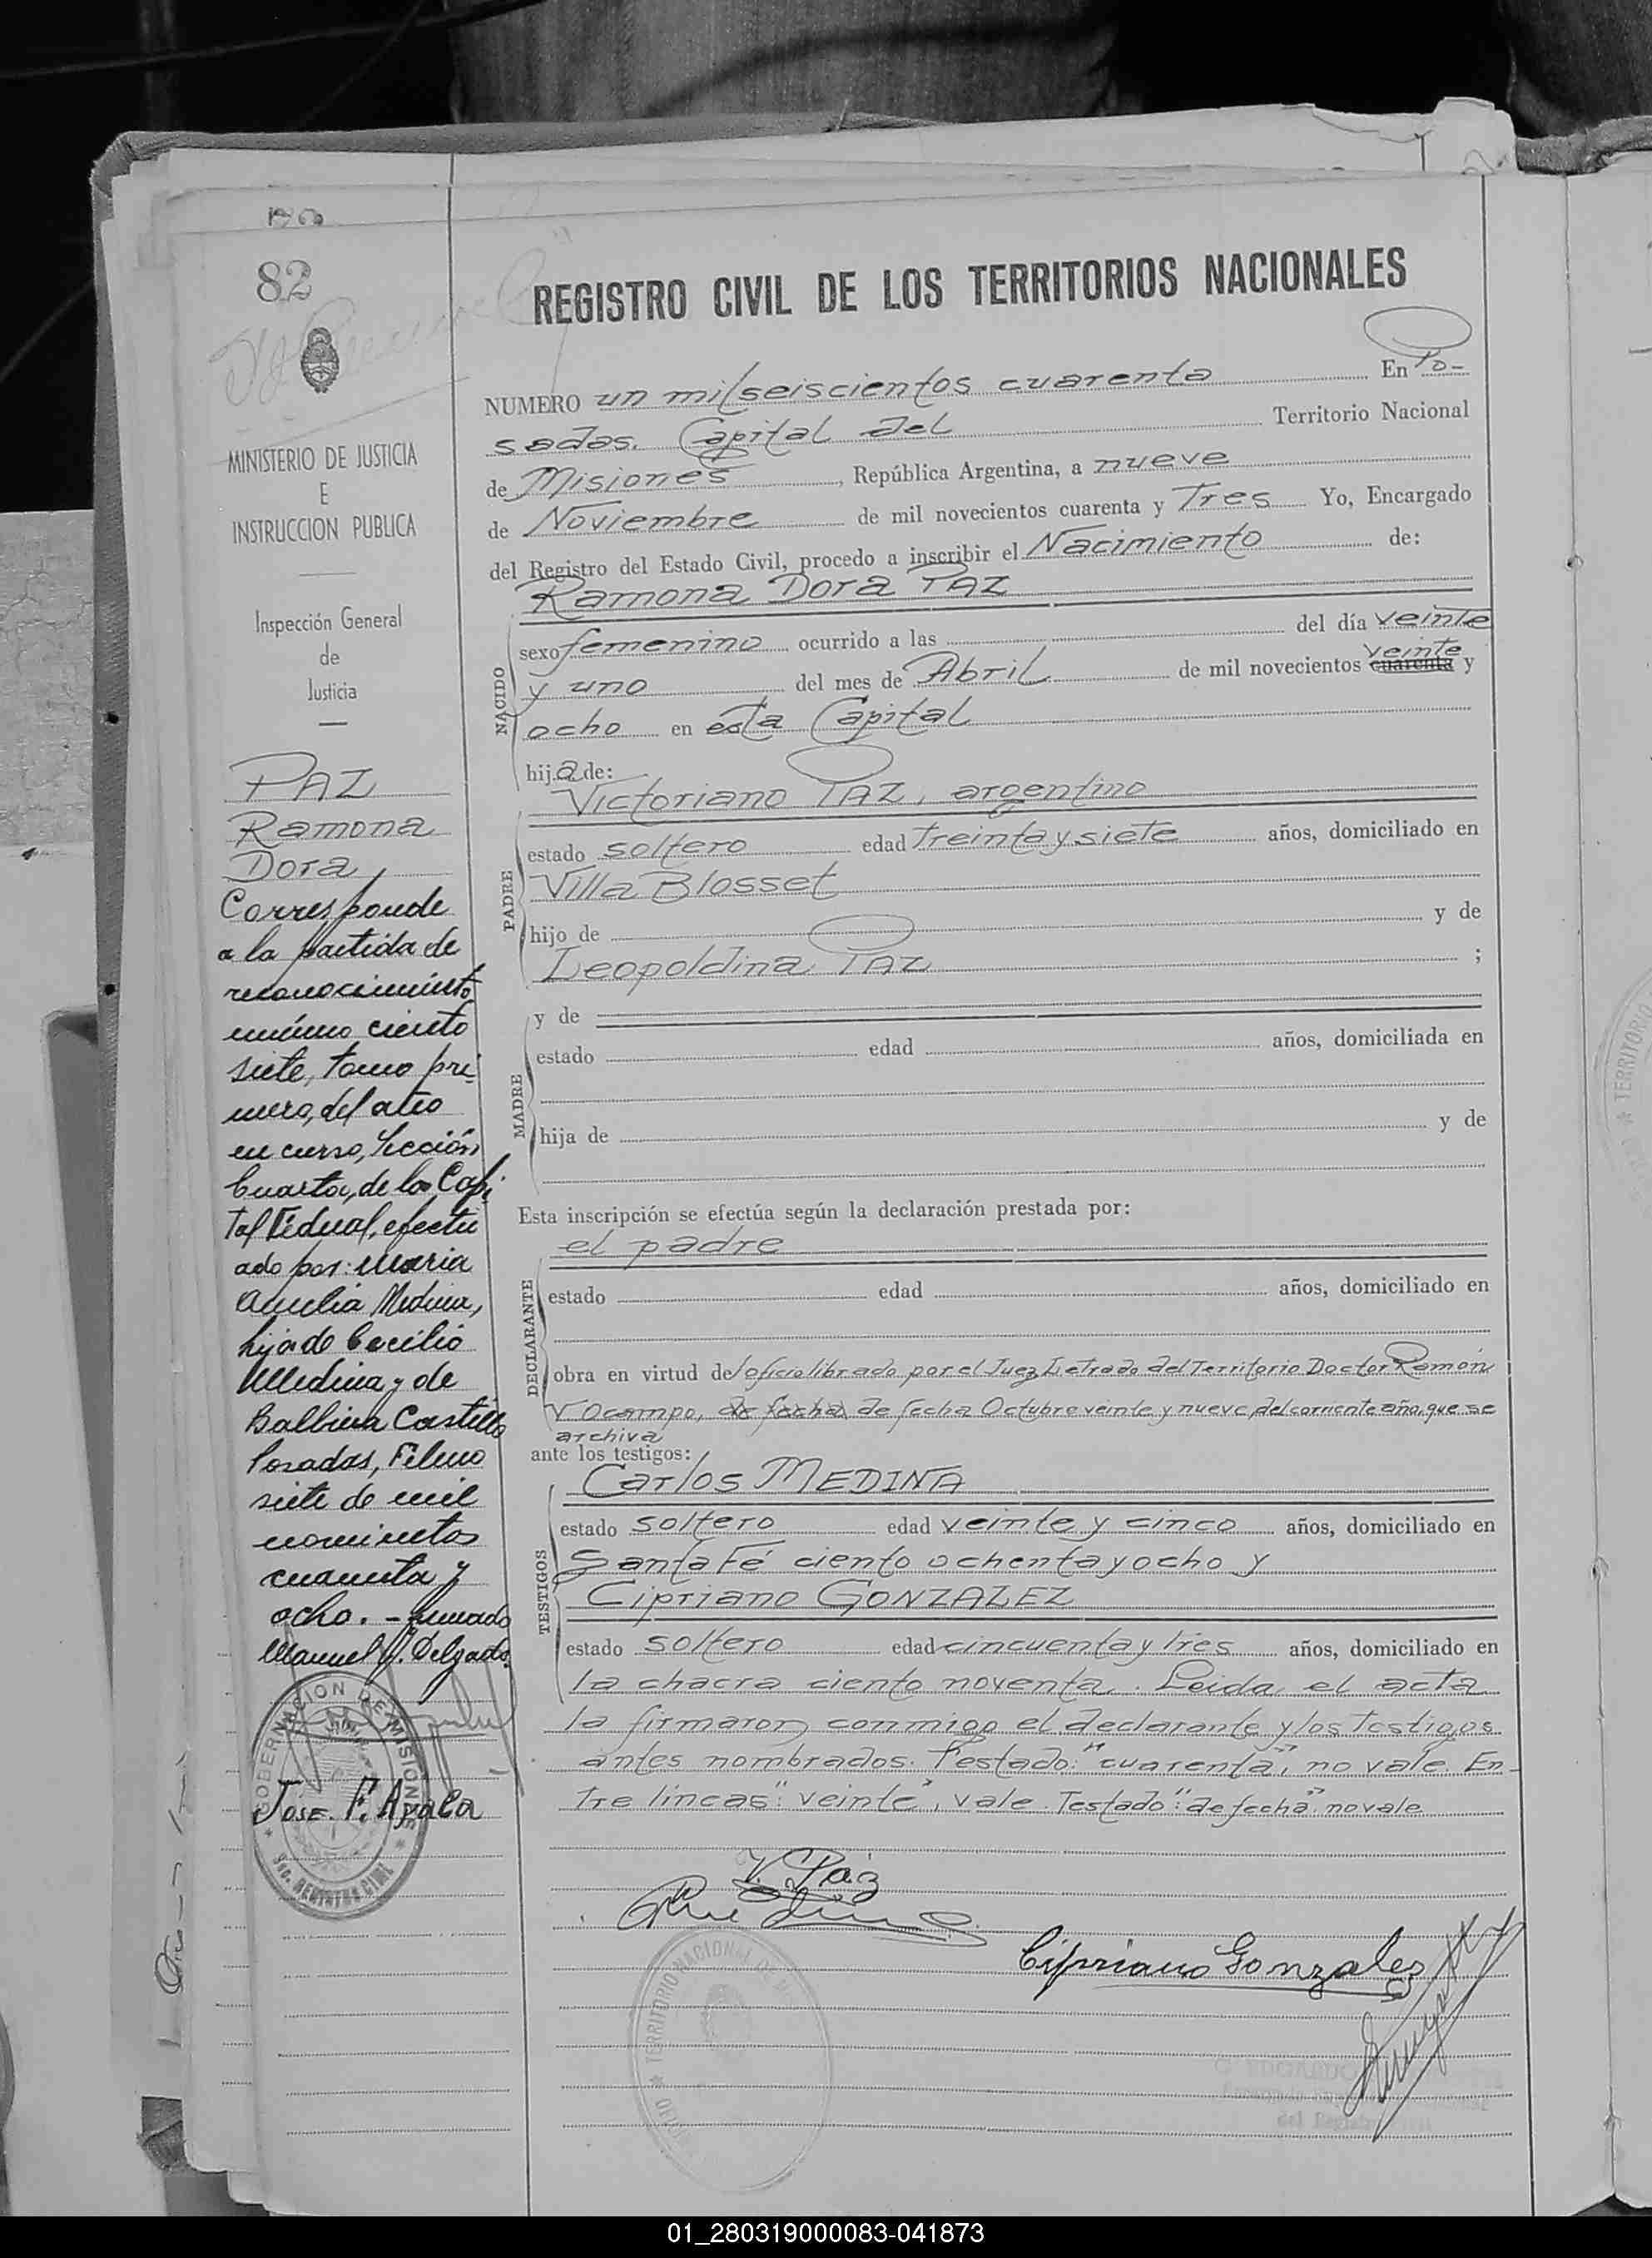 82
MINISTERIO DE JUSTICIA
E
INSTRUCCION PUBLICA
Inspección General
de
Justicia
PAZ
Ramona
Dora
Corresponde
a la partida de
reconocimiento
número ciento
siete, tomo pri-
mero, del año
en curso, Sección
Cuarta, de la Capi-
tal Federal, efectu
ado por: Maria
Amelia Medina,
hija de Cecilio
Medina y de
Balbina Castillo
Posadas,
siete de mil
novecientos
cuarenta y
ocho. - firmado
Manuel J. Delgado.
GOBERNACION DE MISIONES
JOSE. F. Ayala
SEC. REGISTRO CIVIL
REGISTRO CIVIL DE LOS TERRITORIOS NACIONALES
NUMERO un mil seiscientos cuarenta En Po-
sadas. Capital del Territorio Nacional
de Misiones, República Argentina, a nueve
de Noviembre de mil novecientos cuarenta y Tres Yo, Encargado
del Registro del Estado Civil, procedo a inscribir el Nacimiento de:
Ramona Dora PAZ
NACIDO
sexo femenino ocurrido a las del día veinte
veinte
y uno del mes de Abril de mil novecientos cuarenta y
ocho en esta Capital
hija de:
Victoriano PAZ, argentino
PADRE
estado soltero edad treinta y siete años, domiciliado en
Villa Blosset
hijo de y de
Leopoldina PAZ ;
MADRE
y de
estado edad años, domiciliada en
hija de y de
Esta inscripción se efectúa según la declaración prestada por:
el padre
DECLARANTE
estado edad años, domiciliado en
obra en virtud del oficio librado por el Juez Letrado del Territorio Doctor Ramón
V Ocampo, de fecha de fecha Octubre veinte y nueve del corriente año, que se
archiva
ante los testigos:
Carlos MEDINA
TESTIGOS
estado soltero edad veinte y cinco años, domiciliado en
Santa Fé ciento ochenta y ocho y
Cipriano GONZALEZ
estado soltero edad cincuenta y tres años, domiciliado en
la chacra ciento noventa. Leida el acta
la firmaron conmigo el declarante y los testigos
antes nombrados. Testado: "cuarenta", no vale. En-
tre lineas: "veinte", vale. Testado: "de fecha" no vale
V. Paz
Cipriano Gonzalez
TERRITORIO NACIONAL DE
del Registro
TERRITORIO
01_280319000083-041873